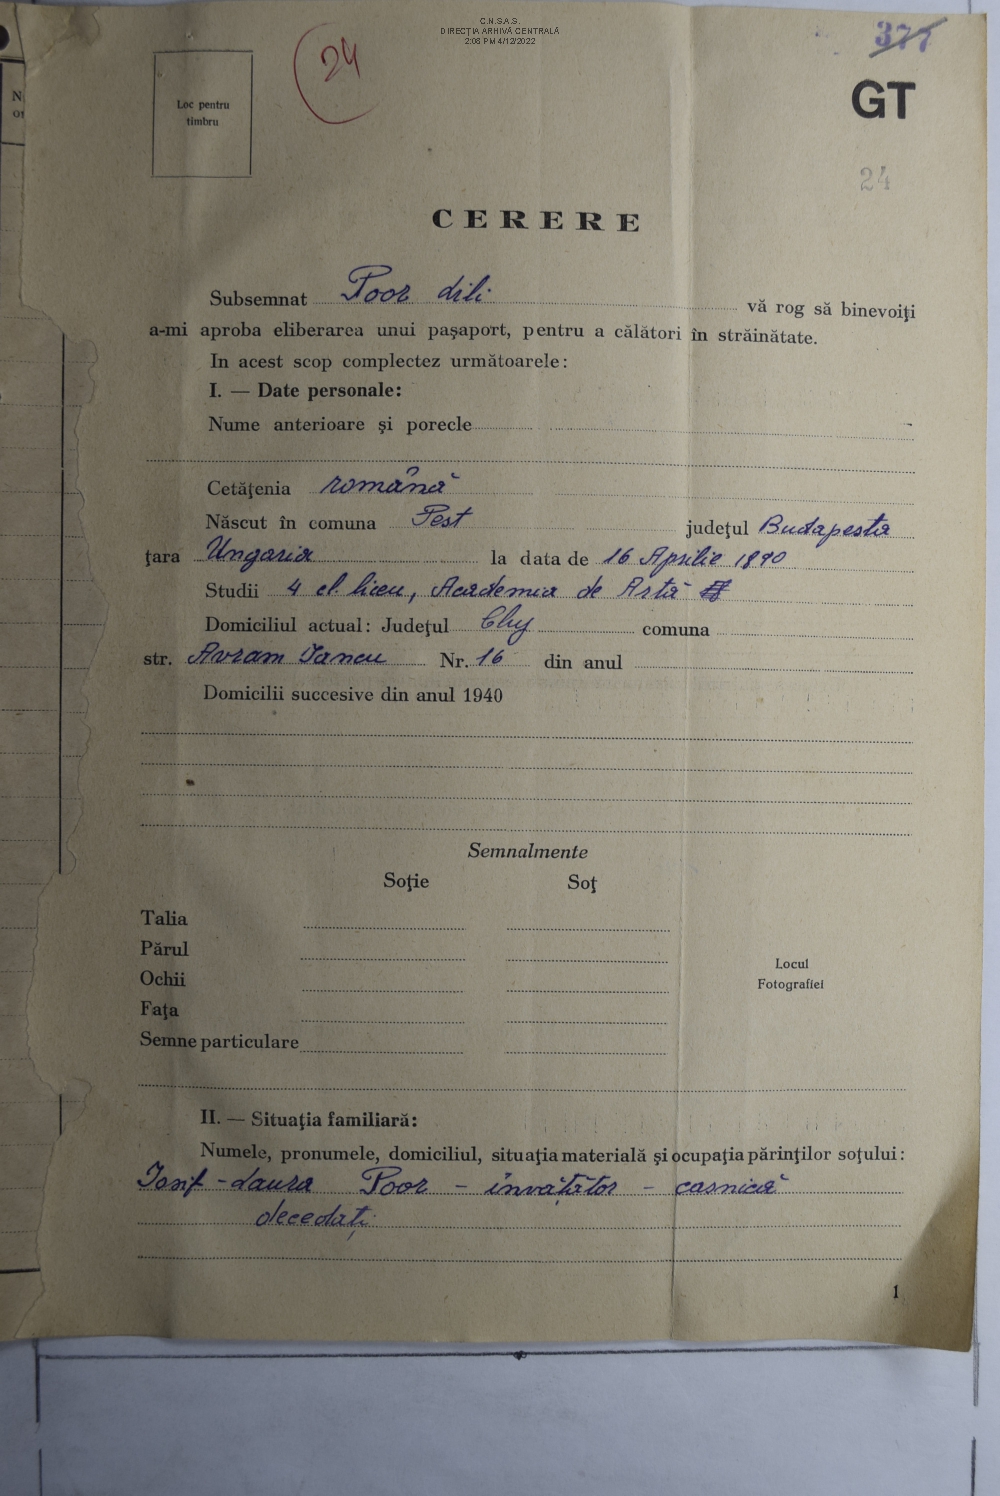 C.N.S.A.S.
DIRECŢIA ARHIVĂ CENTRALĂ
2:08 PM 4/12/2022
377
24
Loc pentru
timbru
GT
24
CERERE
Subsemnat Poor Lili vă rog să binevoiţi
a-mi aproba eliberarea unui paşaport, pentru a călători în străinătate.
In acest scop complectez următoarele:
I. — Date personale:
Nume anterioare şi porecle -
Cetăţenia română
Născut în comuna Pest judeţul Budapesta
ţara Ungaria la data de 16 Aprilie 1890
Studii 4 cl. liceu, Academia de Artă
Domiciliul actual: Judeţul Cluj comuna
str. Avram Iancu Nr. 16 din anul
Domicilii succesive din anul 1940
Semnalmente
Soţie Soţ
Talia
Părul
Ochii
Faţa
Semne particulare
Locul
Fotografiei
II. — Situaţia familiară:
Numele, pronumele, domiciliul, situaţia materială şi ocupaţia părinţilor soţului:
Iosif - Laura Poor - învăţător - casnică
decedaţi
1